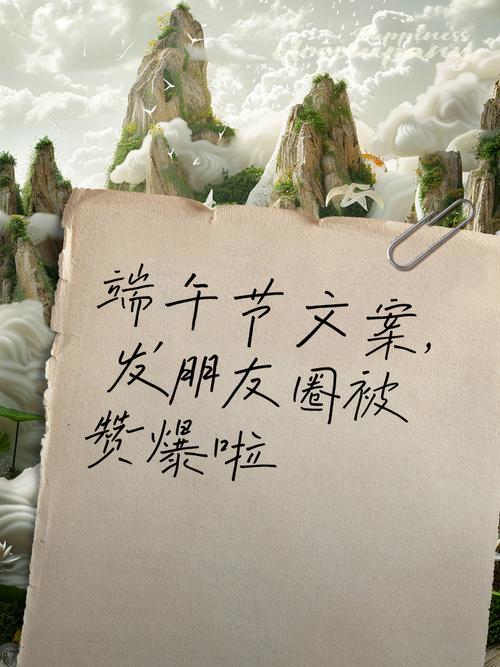 Happiness
端午节文案，
发朋友圈被
赞爆啦